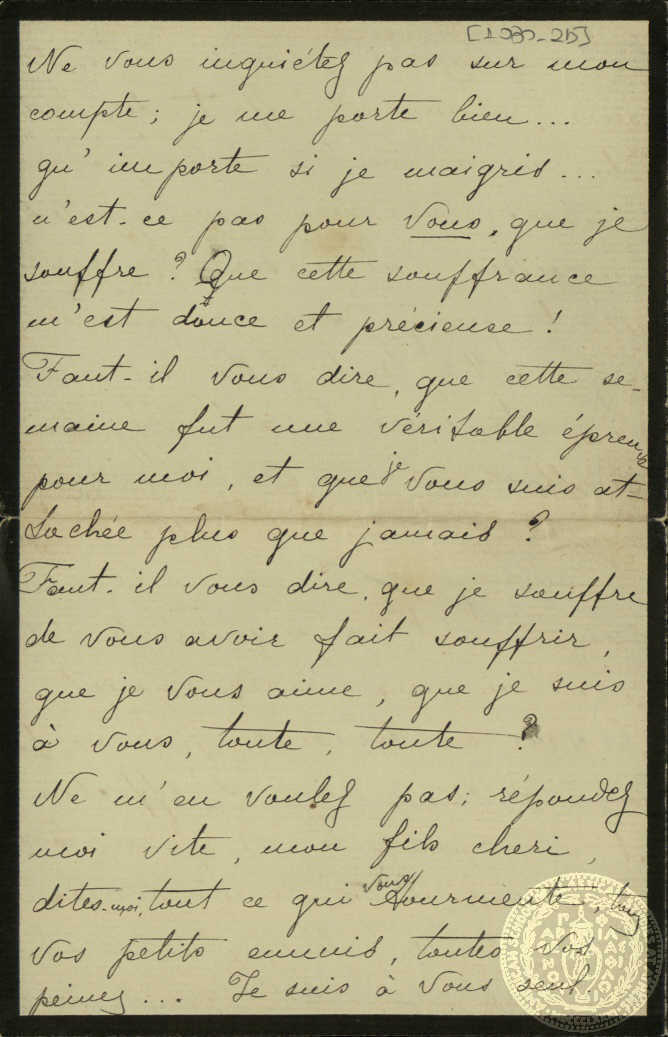 [1030-25]
Ne vous inquiétez pas sur mon
compte; je me porte bien...
qu'importe si je maigris...
n'est-ce pas pour vous, que je
souffre? Que cette souffrance
m'est douce et précieuse!
Faut-il vous dire, que cette se-
maine fut une véritable épreuve
pour moi, et que je vous suis at-
tachée plus que jamais?
Faut-il vous dire, que je souffre
de vous avoir fait souffrir,
que je vous aime, que je suis
à vous, toute, toute?
Ne m'en voulez pas; répondez
moi vite, mon fils cheri,
dites-moi, tout ce qui vous tourmente, tous
vos petits ennuis, toutes vos
peines... Je suis à vous seul.